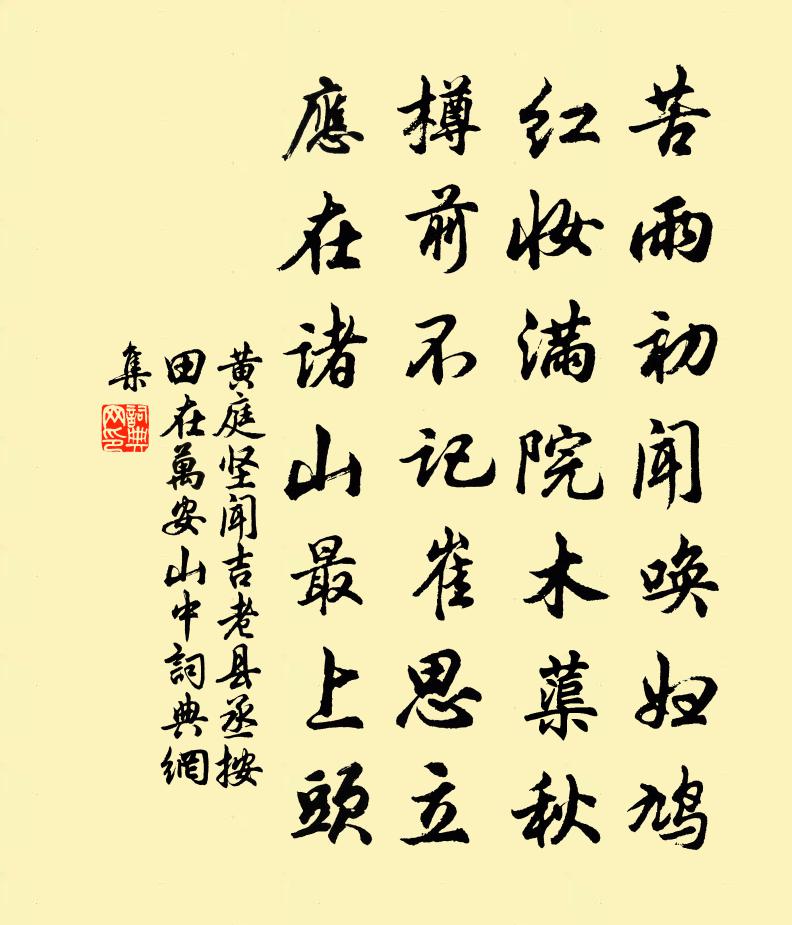 苦雨初闻唤妇鸠
红妆滿院木蕖秋
樽前不记崔思立
應在诸山最上頭
黄庭坚闻吉老县丞按
田在萬安山中詞典網
集
詞典
网印